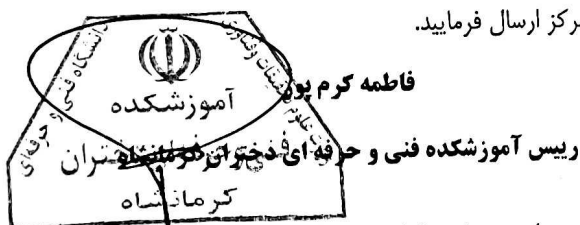 رکز ارسال فرمایید.
فاطمه کرم پور
رییس آموزشکده فنی و حرفه ای دختران کرمانشاه
دانشگاه فنی و حرفه‌ای
وزارت علوم تحقیقات وفناوری
آموزشکده
دختران
کرمانشاه